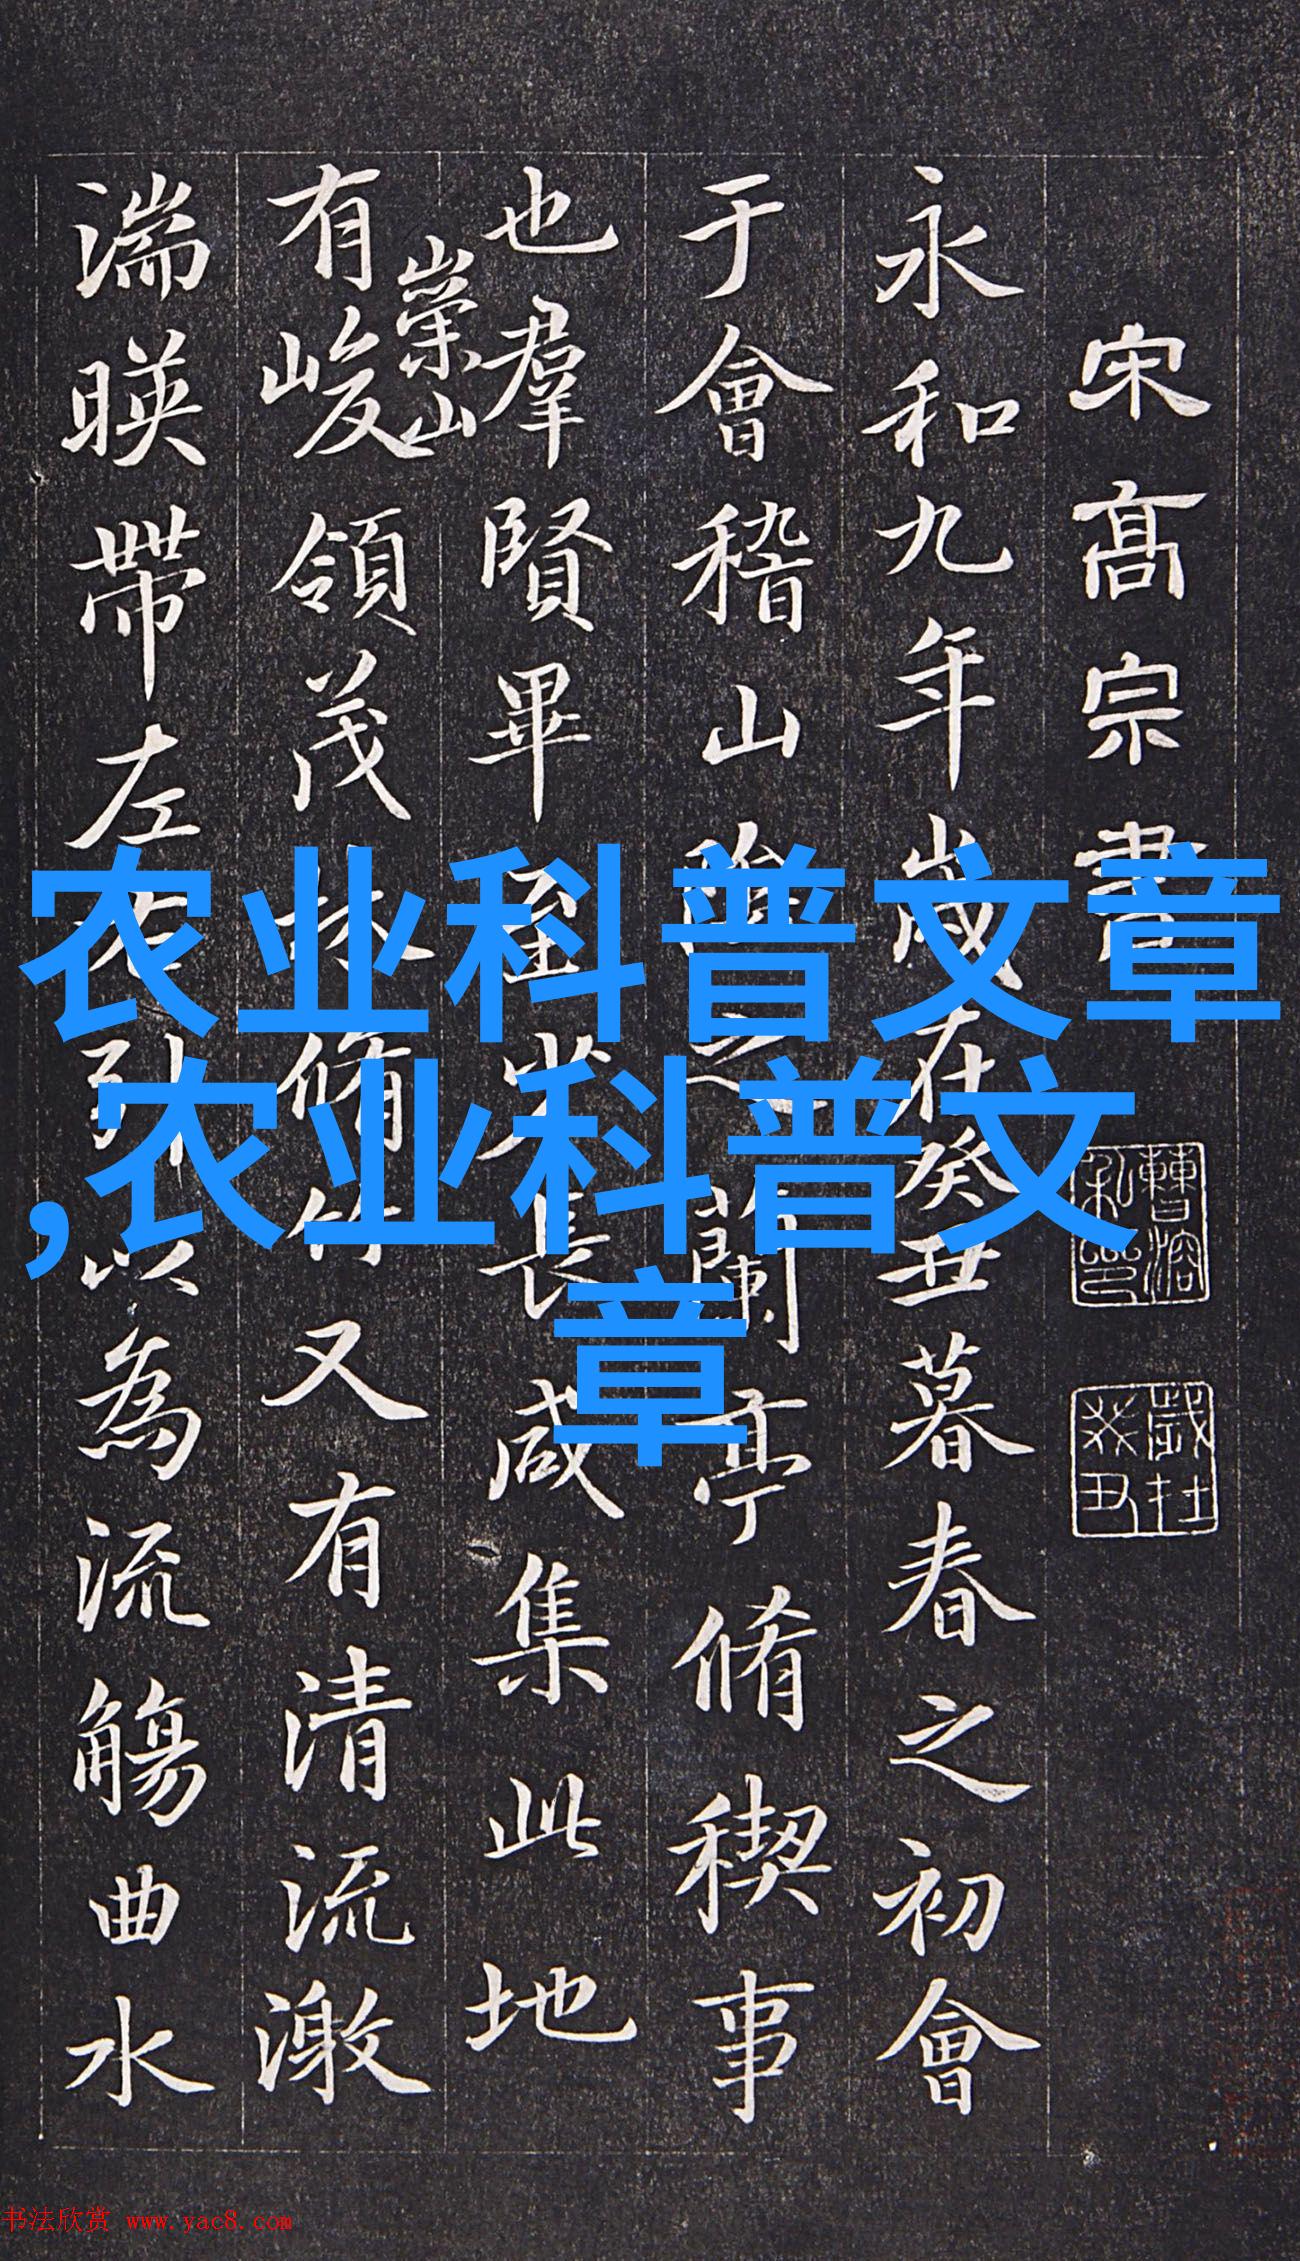 宋高宗書
永和九年歲在癸丑暮春之初會
于會稽山陰之蘭亭脩稧事
也羣賢畢至少長咸集此地
有峻領茂林脩竹又有清流激
崇山
湍暎帶左右引以為流觴曲水
農业科普文章
,农业科普文
章
歲在
癸丑
书法欣赏 www.yac8.com